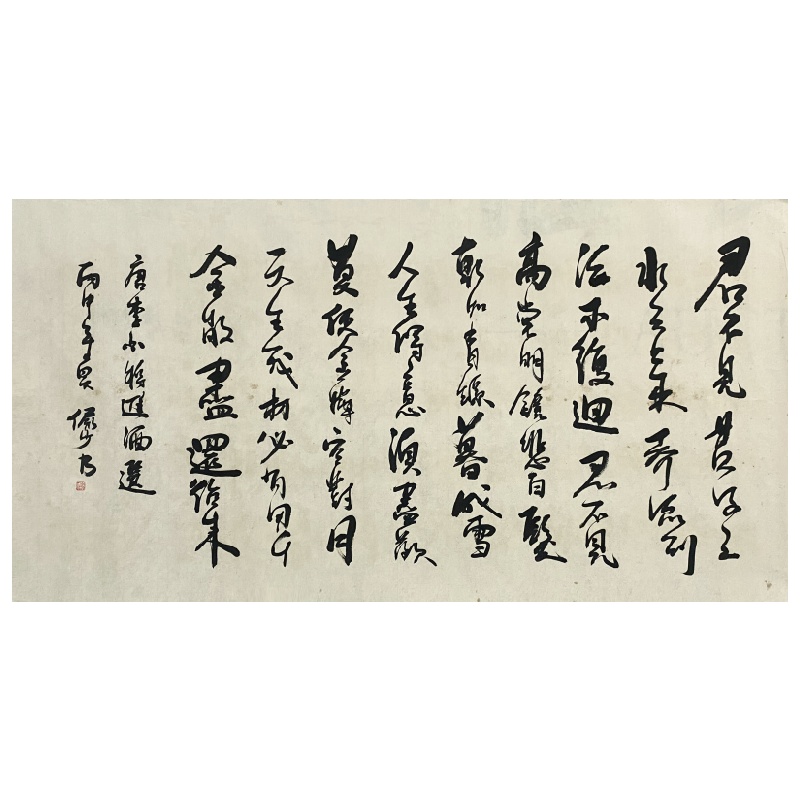 君不見黃河之
水天上來奔流到
海不復迴君不見
高堂明鏡悲白髮
朝如青絲暮成雪
人生得意須盡歡
莫使金樽空對月
天生我材必有用千
金散盡還復來
唐李白將進酒選
丙申年